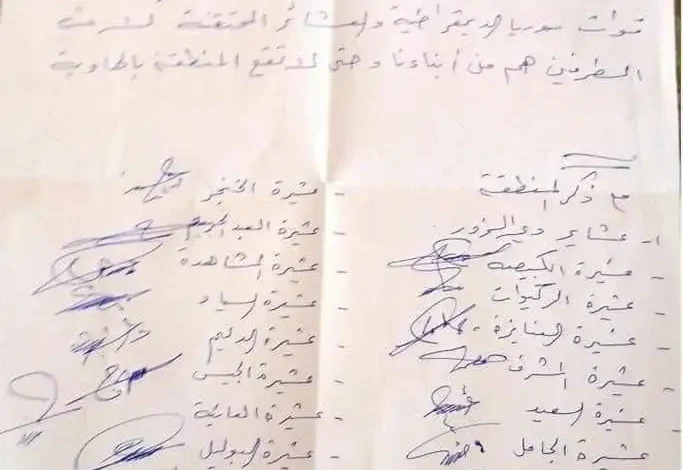 قوات سوريا الديمقراطية والعشائر المحتقنة لأن
الطرفين هم من أبناءنا وحتى لا تقع المنطقة بالهاوية
مع ذكر المنطقة
١- عشاير دير الزور
- عشيرة الكبيصه
- عشيرة الركيوات
- عشيرة
- عشيرة المشرف
- عشيرة السعيد
- عشيرة الجامل
- عشيرة الخنجر
- عشيرة العبد الكريم
- عشيرة المشاهدة
- عشيرة السياد
- عشيرة الدليم
- عشيرة الجيس
- عشيرة العانية
- عشيرة البوليل